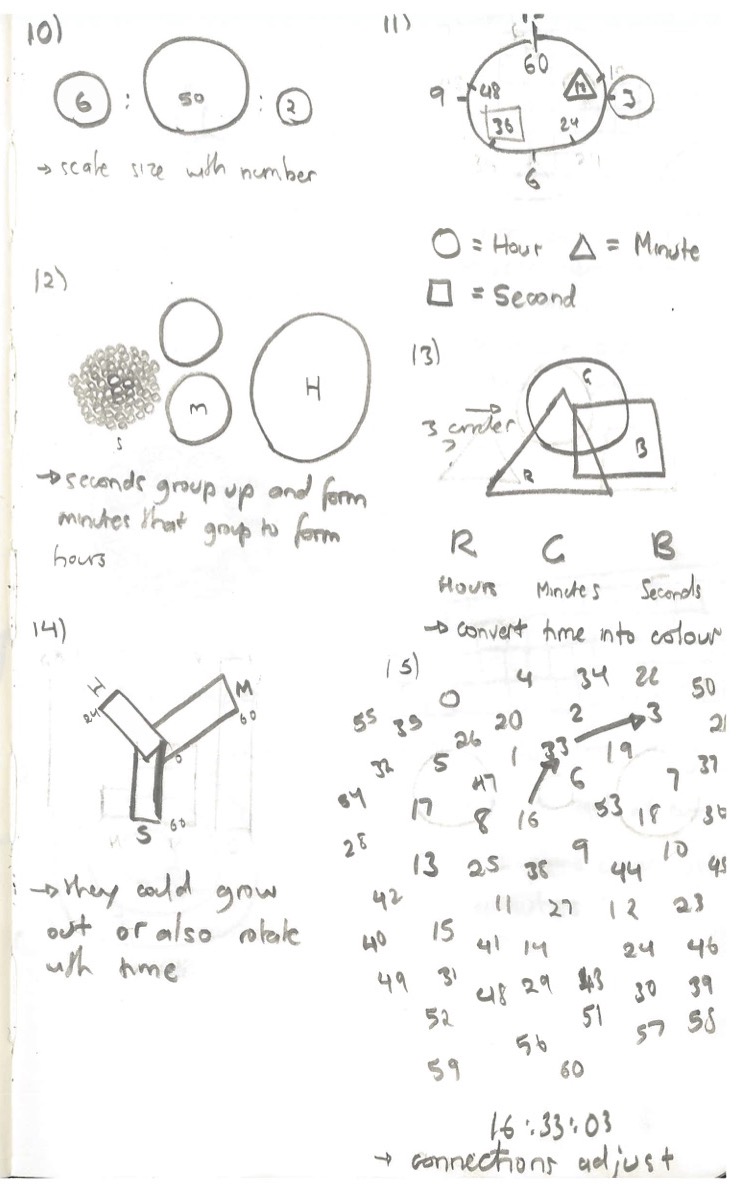 10)
6 : 50 : 2
→ scale size with number
11)
60
9 48 12 3
36 24
6
○ = Hour △ = Minute
□ = Second
12)
S M H
→ seconds group up and form
minutes that group to form
hours
13)
G
3
R B
R G B
Hours Minutes Seconds
→ convert time into colour
14)
H M
24 0 60
S 60
→ they could grow
out or also rotate
with time
15)
4 34 22 50
0
55 35 20 2 3 21
26 1 33 19
32 5 47 6 7 37
54 17 8 16 53 18 36
28 9 10
13 25 38 44 45
42 11 27 12 23
40 15 41 14 24 46
49 31 48 29 43 30 39
52 51 57 58
56
59 60
16:33:03
→ connections adjust